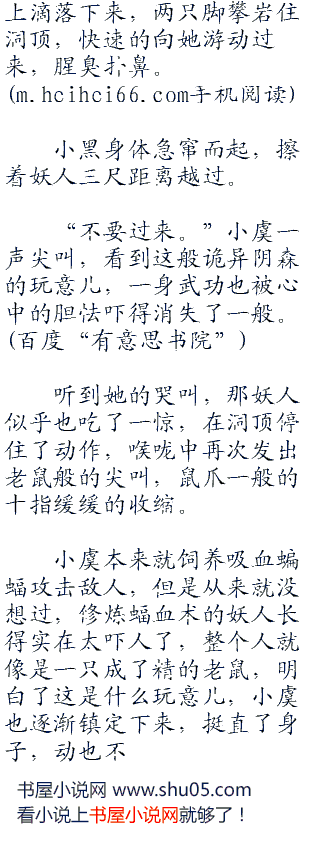 上滴落下来，两只脚攀岩住
洞顶，快速的向她游动过
来，腥臭扑鼻。
(m.hcihci66.com手机阅读)
小黑身体急窜而起，擦
着妖人三尺距离越过。
“不要过来。”小虞一
声尖叫，看到这般诡异阴森
的玩意儿，一身武功也被心
中的胆怯吓得消失了一般。
(百度“有意思书院”)
听到她的哭叫，那妖人
似乎也吃了一惊，在洞顶停
住了动作，喉咙中再次发出
老鼠般的尖叫，鼠爪一般的
十指缓缓的收缩。
小虞本来就饲养吸血蝙
蝠攻击敌人，但是从来就没
想过，修炼蝠血术的妖人长
得实在太吓人了，整个人就
像是一只成了精的老鼠，明
白了这是什么玩意儿，小虞
也逐渐镇定下来，挺直了身
子，动也不
书屋小说网 www.shu05.com
看小说上书屋小说网就够了！